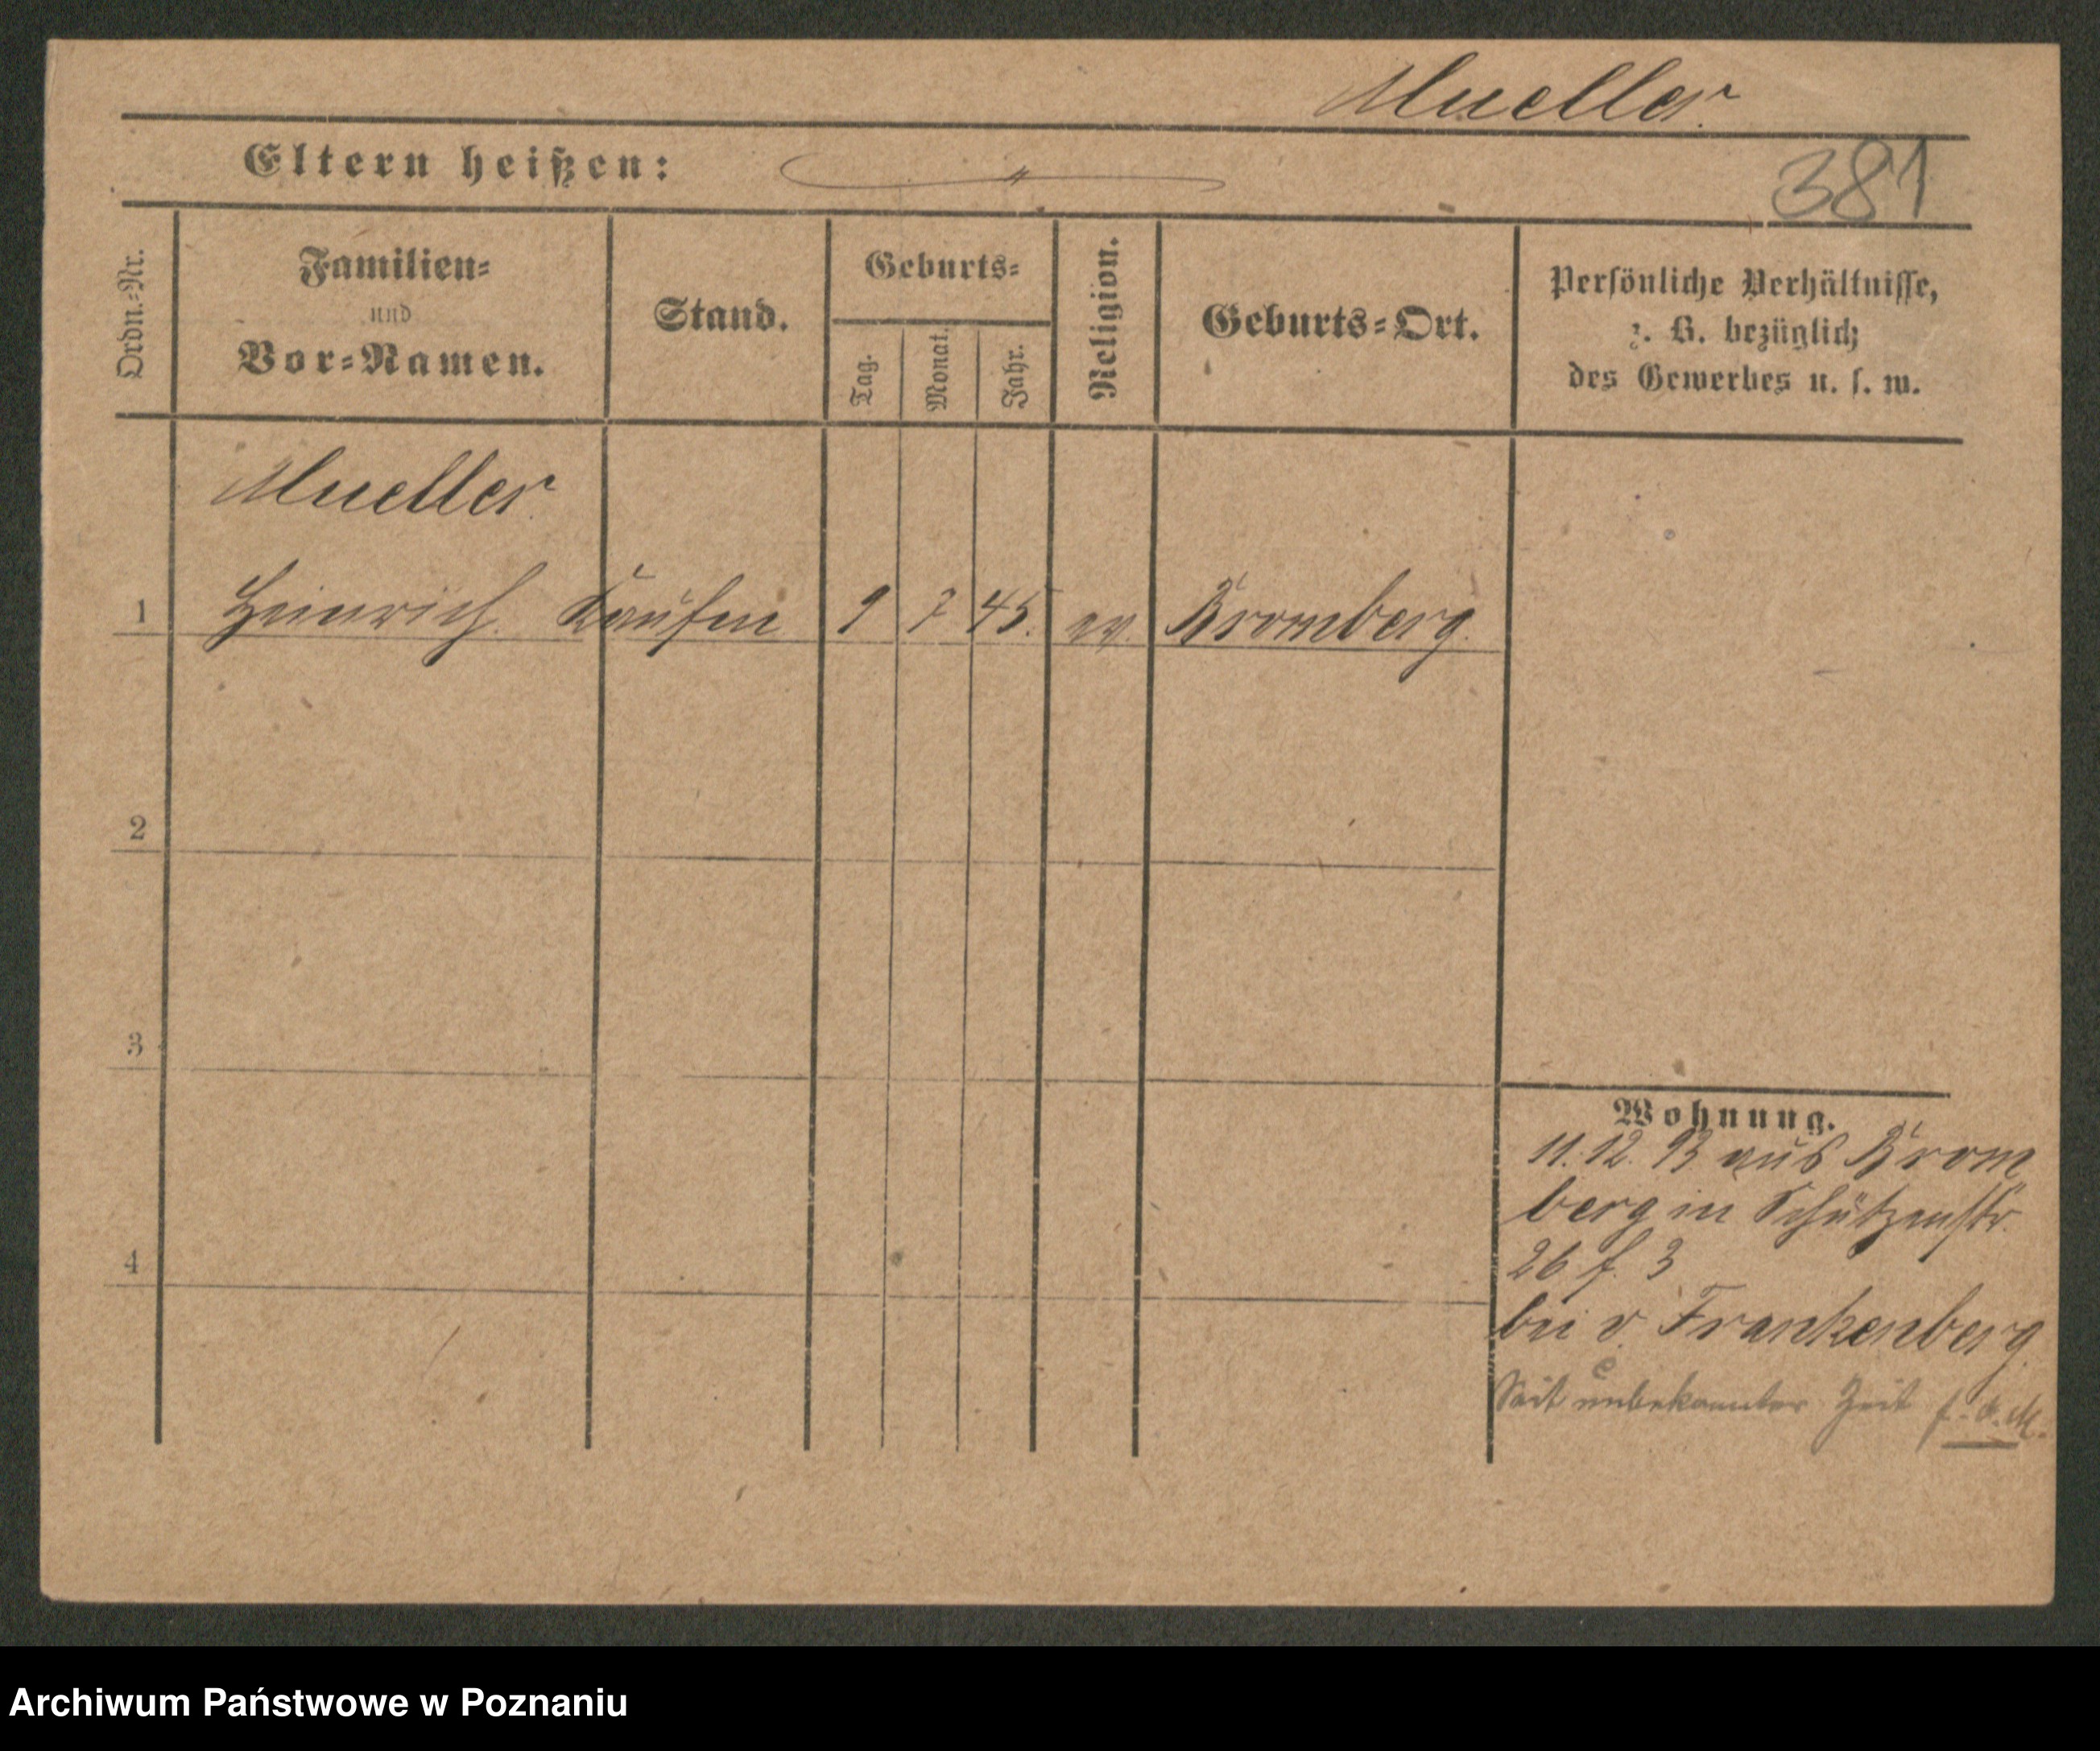 Mueller.
Eltern heißen:
381
Ordn.-Nr.
Familien-
und
Vor-Namen.
Stand.
Geburts-
Tag.
Monat.
Jahr.
Religion.
Geburts-Ort.
Persönliche Verhältnisse,
z. B. bezüglich
des Gewerbes u. s. w.
Mueller.
1 Heinrich. 9 7 45. ev. Bromberg.
2
3
Wohnung.
11. 12. 93 aus Brom
berg in Schützenstr.
4
26 f. 3
bei v. Frankenberg.
Seit unbekannter Zeit
Archiwum Państwowe w Poznaniu